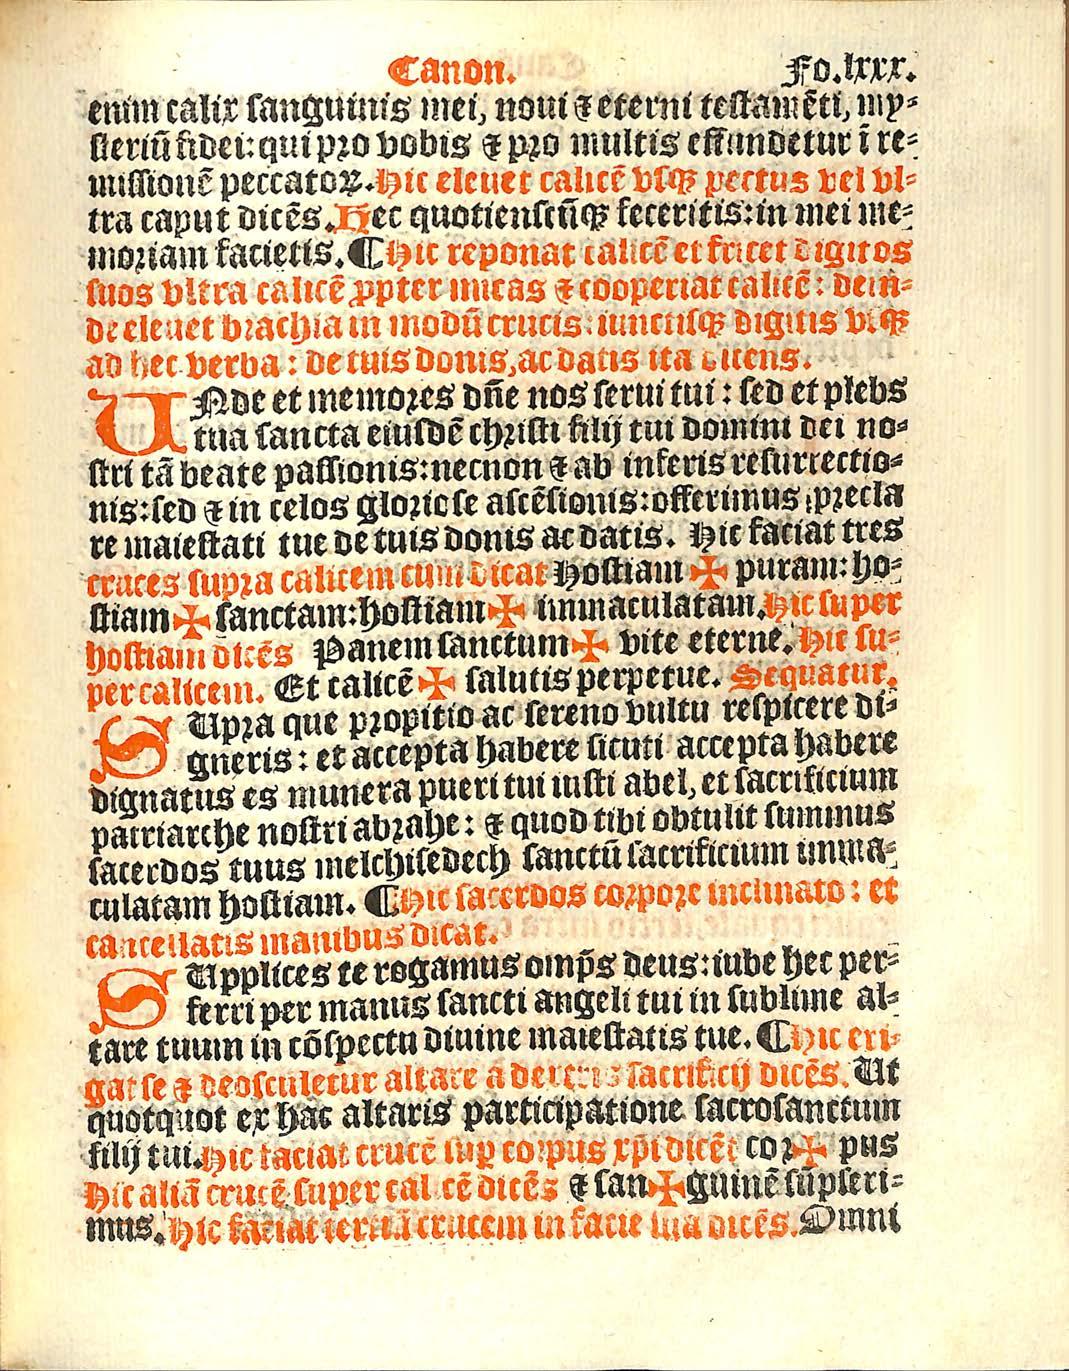 Canon. Fo.lxxx.
enim calix sanguinis mei, noui ⁊ eterni testamēti, my⸗
steriū fidei: qui pro vobis ⁊ pro multis effundetur ī re⸗
missionē peccatoꝝ. Hic eleuet calicē vsqꝫ pectus vel vl⸗
tra caput dicēs. Hec quotienscūqꝫ feceritis: in mei me⸗
moriam facietis. ¶ Hic reponat calicē et fricet digitos
suos vltra calicē ꝓpter micas ⁊ cooperiat calicē: dein⸗
de eleuet brachia in modū crucis: iunctisqꝫ digitis vsqꝫ
ad hec verba: de tuis donis, ac datis ita dicens.
UNde et memores dn̄e nos serui tui: sed et plebs
tua sancta eiusdē christi filij tui domini dei no⸗
stri tā beate passionis: necnon ⁊ ab inferis resurrectio⸗
nis: sed ⁊ in celos gloriose ascēsionis: offerimus precla
re maiestati tue de tuis donis ac datis. Hic faciat tres
cruces supra calicem cum dicat Hostiam ✠ puram: ho⸗
stiam ✠ sanctam: hostiam ✠ immaculatam. Hic super
hostiam dicēs Panem sanctum ✠ vite eterne. Hic su⸗
per calicem. Et calicē ✠ salutis perpetue. Sequatur.
SUpra que propitio ac sereno vultu respicere di⸗
gneris: et accepta habere sicuti accepta habere
dignatus es munera pueri tui iusti abel, et sacrificium
patriarche nostri abrahe: ⁊ quod tibi obtulit summus
sacerdos tuus melchisedech sanctū sacrificium imma⸗
culatam hostiam. ¶ Hic sacerdos corpore inclinato: et
cancellatis manibus dicat.
SUpplices te rogamus omp̄s deus: iube hec per⸗
ferri per manus sancti angeli tui in sublime al⸗
tare tuum in cōspectu diuine maiestatis tue. ¶ Hic eri⸗
gat se ⁊ deosculetur altare a dextris sacrificij dicēs. Ut
quotquot ex hac altaris participatione sacrosanctum
filij tui. Hic faciat crucē sup̱ corpus xp̄i dicēs cor ✠ pus
Hic aliā crucē super calicē dicēs ⁊ san ✠ guinē sūpseri⸗
mus. Hic faciat tertiā crucem in facie sua dicēs. Omni